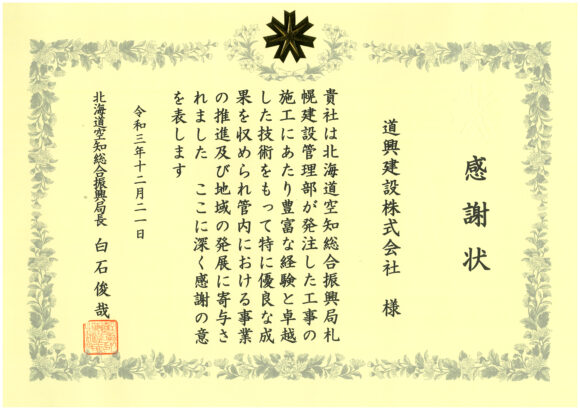 感謝状
道興建設株式会社 様
貴社は北海道空知総合振興局札
幌建設管理部が発注した工事の
施工にあたり豊富な経験と卓越
した技術をもって特に優良な成
果を収められ管内における事業
の推進及び地域の発展に寄与さ
れました ここに深く感謝の意
を表します
令和三年十二月二一日
北海道空知総合振興局長 白石俊哉